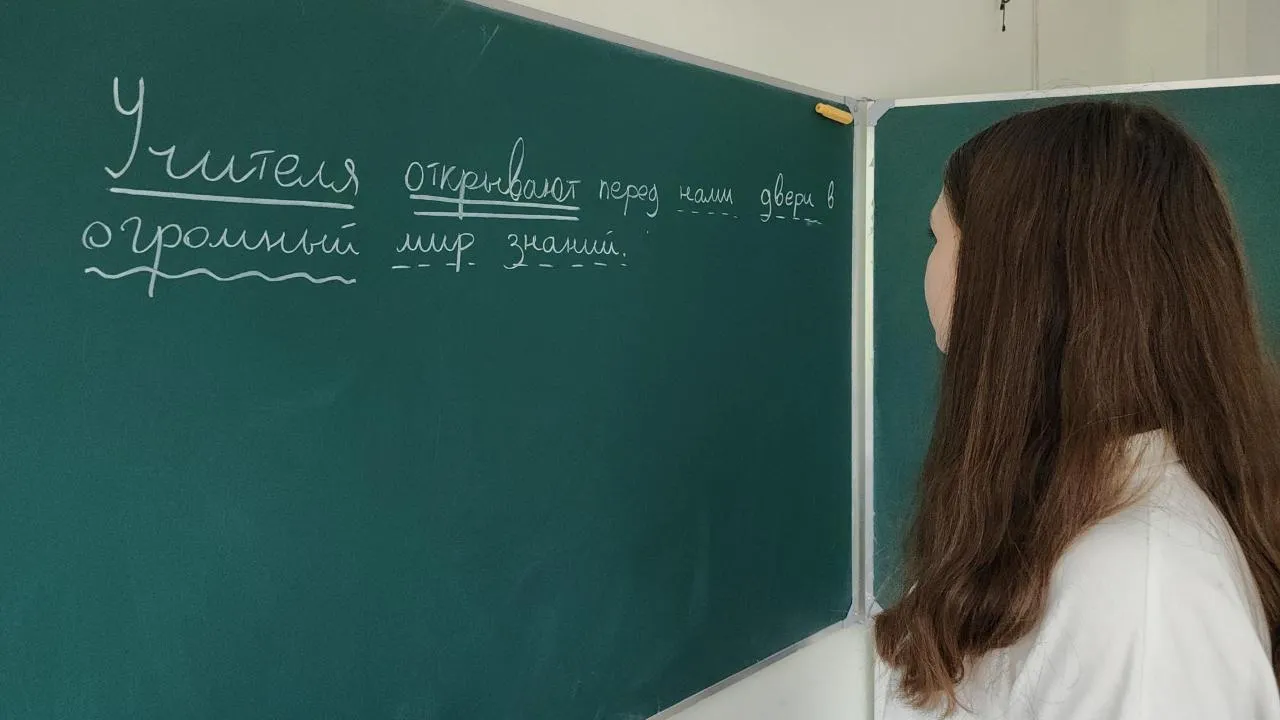 Учителя открывают перед нами двери в
огромный мир знаний.